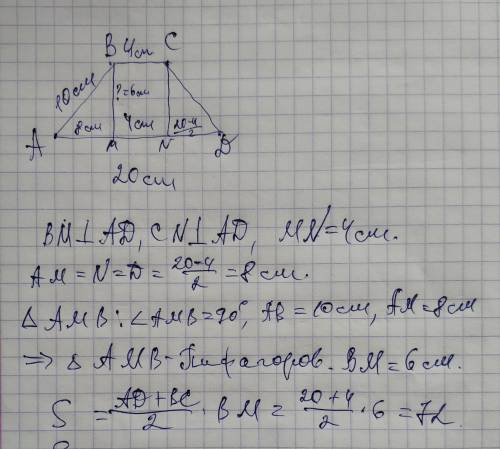 B 4см C
10см
?=6см
A 8см 4см 20-4/2
M N D
20см
BM⊥AD, CN⊥AD, MN=4см.
AM=N=D=20-4/2=8см.
△AMB: ∠AMB=90°, AB=10см, AM=8см
⇒ △AMB-Пифагоров. BM=6см.
S=AD+BC/2·BM=20+4/2·6=72.